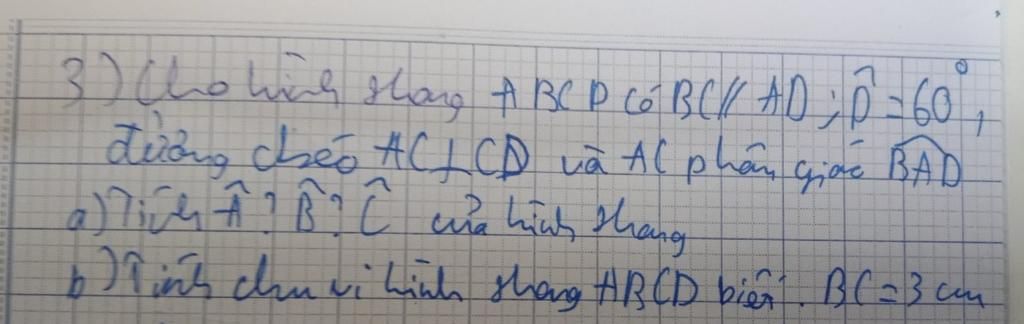 3) Cho hình thang ABCD có BC // AD ; D̂ = 60°,
đường chéo AC ⊥ CD và AC phân giác BAD
a) Tính Â ? B̂ ? Ĉ của hình thang
b) Tính chu vi hình thang ABCD biết. BC = 3 cm